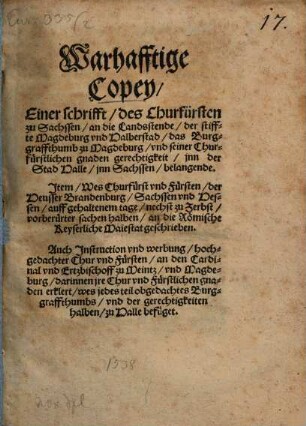 17.
Warhafftige
Copey/
Einer schrifft / des Churfürsten
zu Sachssen / an die Landsstende / der stiff-
te Magdeburg vnd Halberstad / das Burg-
graffthumb zu Magdeburg / vnd seiner Chur-
fürstlichen gnaden gerechtigkeit / jnn der
Stad Halle / jnn Sachssen / belangende.
Item / Wes Churfürst vnd Fürsten / der
Heusser Brandenburg / Sachssen vnd Hes-
sen / auff gehaltenem tage / nechst zu Zerbst /
vorberürter sachen halben / an die Römische
Keyserliche Maiestat geschrieben.
Auch Instruction vnd werbung / hoch-
gedachter Chur vnd Fürsten / an den Cardi-
nal vnd Ertzbischoff zu Meintz / vnd Magde-
burg / darinnen jre Chur vnd Fürstlichen gna-
den erklert / wes jedes teil obgedachtes Burg-
graffthumbs / vnd der gerechtigkeiten
halben / zu Halle befüget.
1538